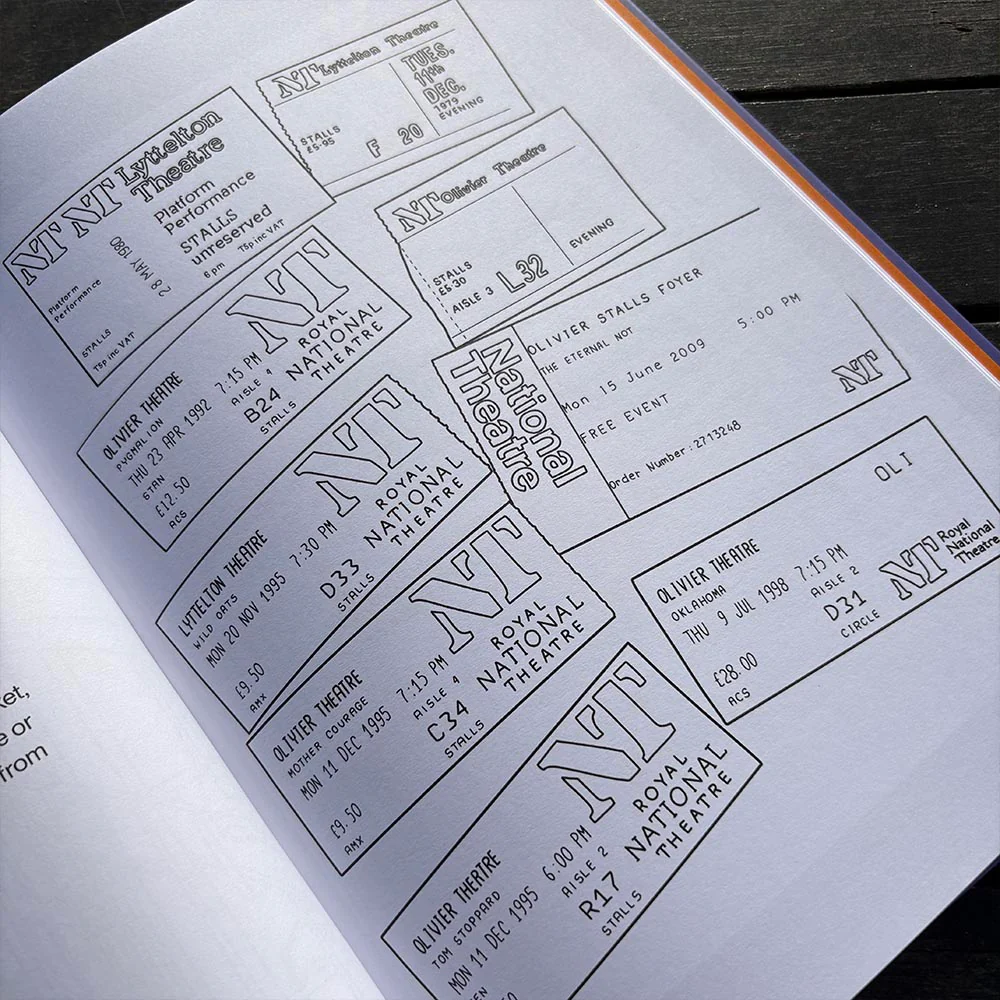 NT NT Lyttelton
Theatre
Platform
Performance
STALLS
unreserved
6 pm 75p inc VAT
28 MAY 1980
Platform
Performance
STALLS
75p inc VAT
NT Lyttelton Theatre
TUES.
11th
DEC.
1979
EVENING
STALLS
£5·95
F 20
NT Olivier Theatre
STALLS
£6·30
AISLE 3 L32
EVENING
National
Theatre
OLIVIER STALLS FOYER
THE ETERNAL NOT
5:00 PM
Mon 15 June 2009
FREE EVENT
Order Number:2713248
NT
NT
ROYAL
NATIONAL
THEATRE
OLIVIER THEATRE
PYGMALION
THU 23 APR 1992 7:15 PM
STAN
AISLE 4
£12.50
B24
ACS
STALLS
NT
ROYAL
NATIONAL
THEATRE
LYTTELTON THEATRE
WILD OATS
MON 20 NOV 1995 7:30 PM
D33
STALLS
£9.50
AMX
NT
ROYAL
NATIONAL
THEATRE
OLIVIER THEATRE
MOTHER COURAGE
MON 11 DEC 1995 7:15 PM
AISLE 4
C34
STALLS
£9.50
AMX
OLI
OLIVIER THEATRE
OKLAHOMA
THU 9 JUL 1998 7:15 PM
AISLE 2
D31
CIRCLE
£28.00
ACS
NT Royal
National
Theatre
NT
ROYAL
NATIONAL
THEATRE
OLIVIER THEATRE
TOM STOPPARD
MON 11 DEC 1995 6:00 PM
AISLE 2
R17
STALLS
e or
from